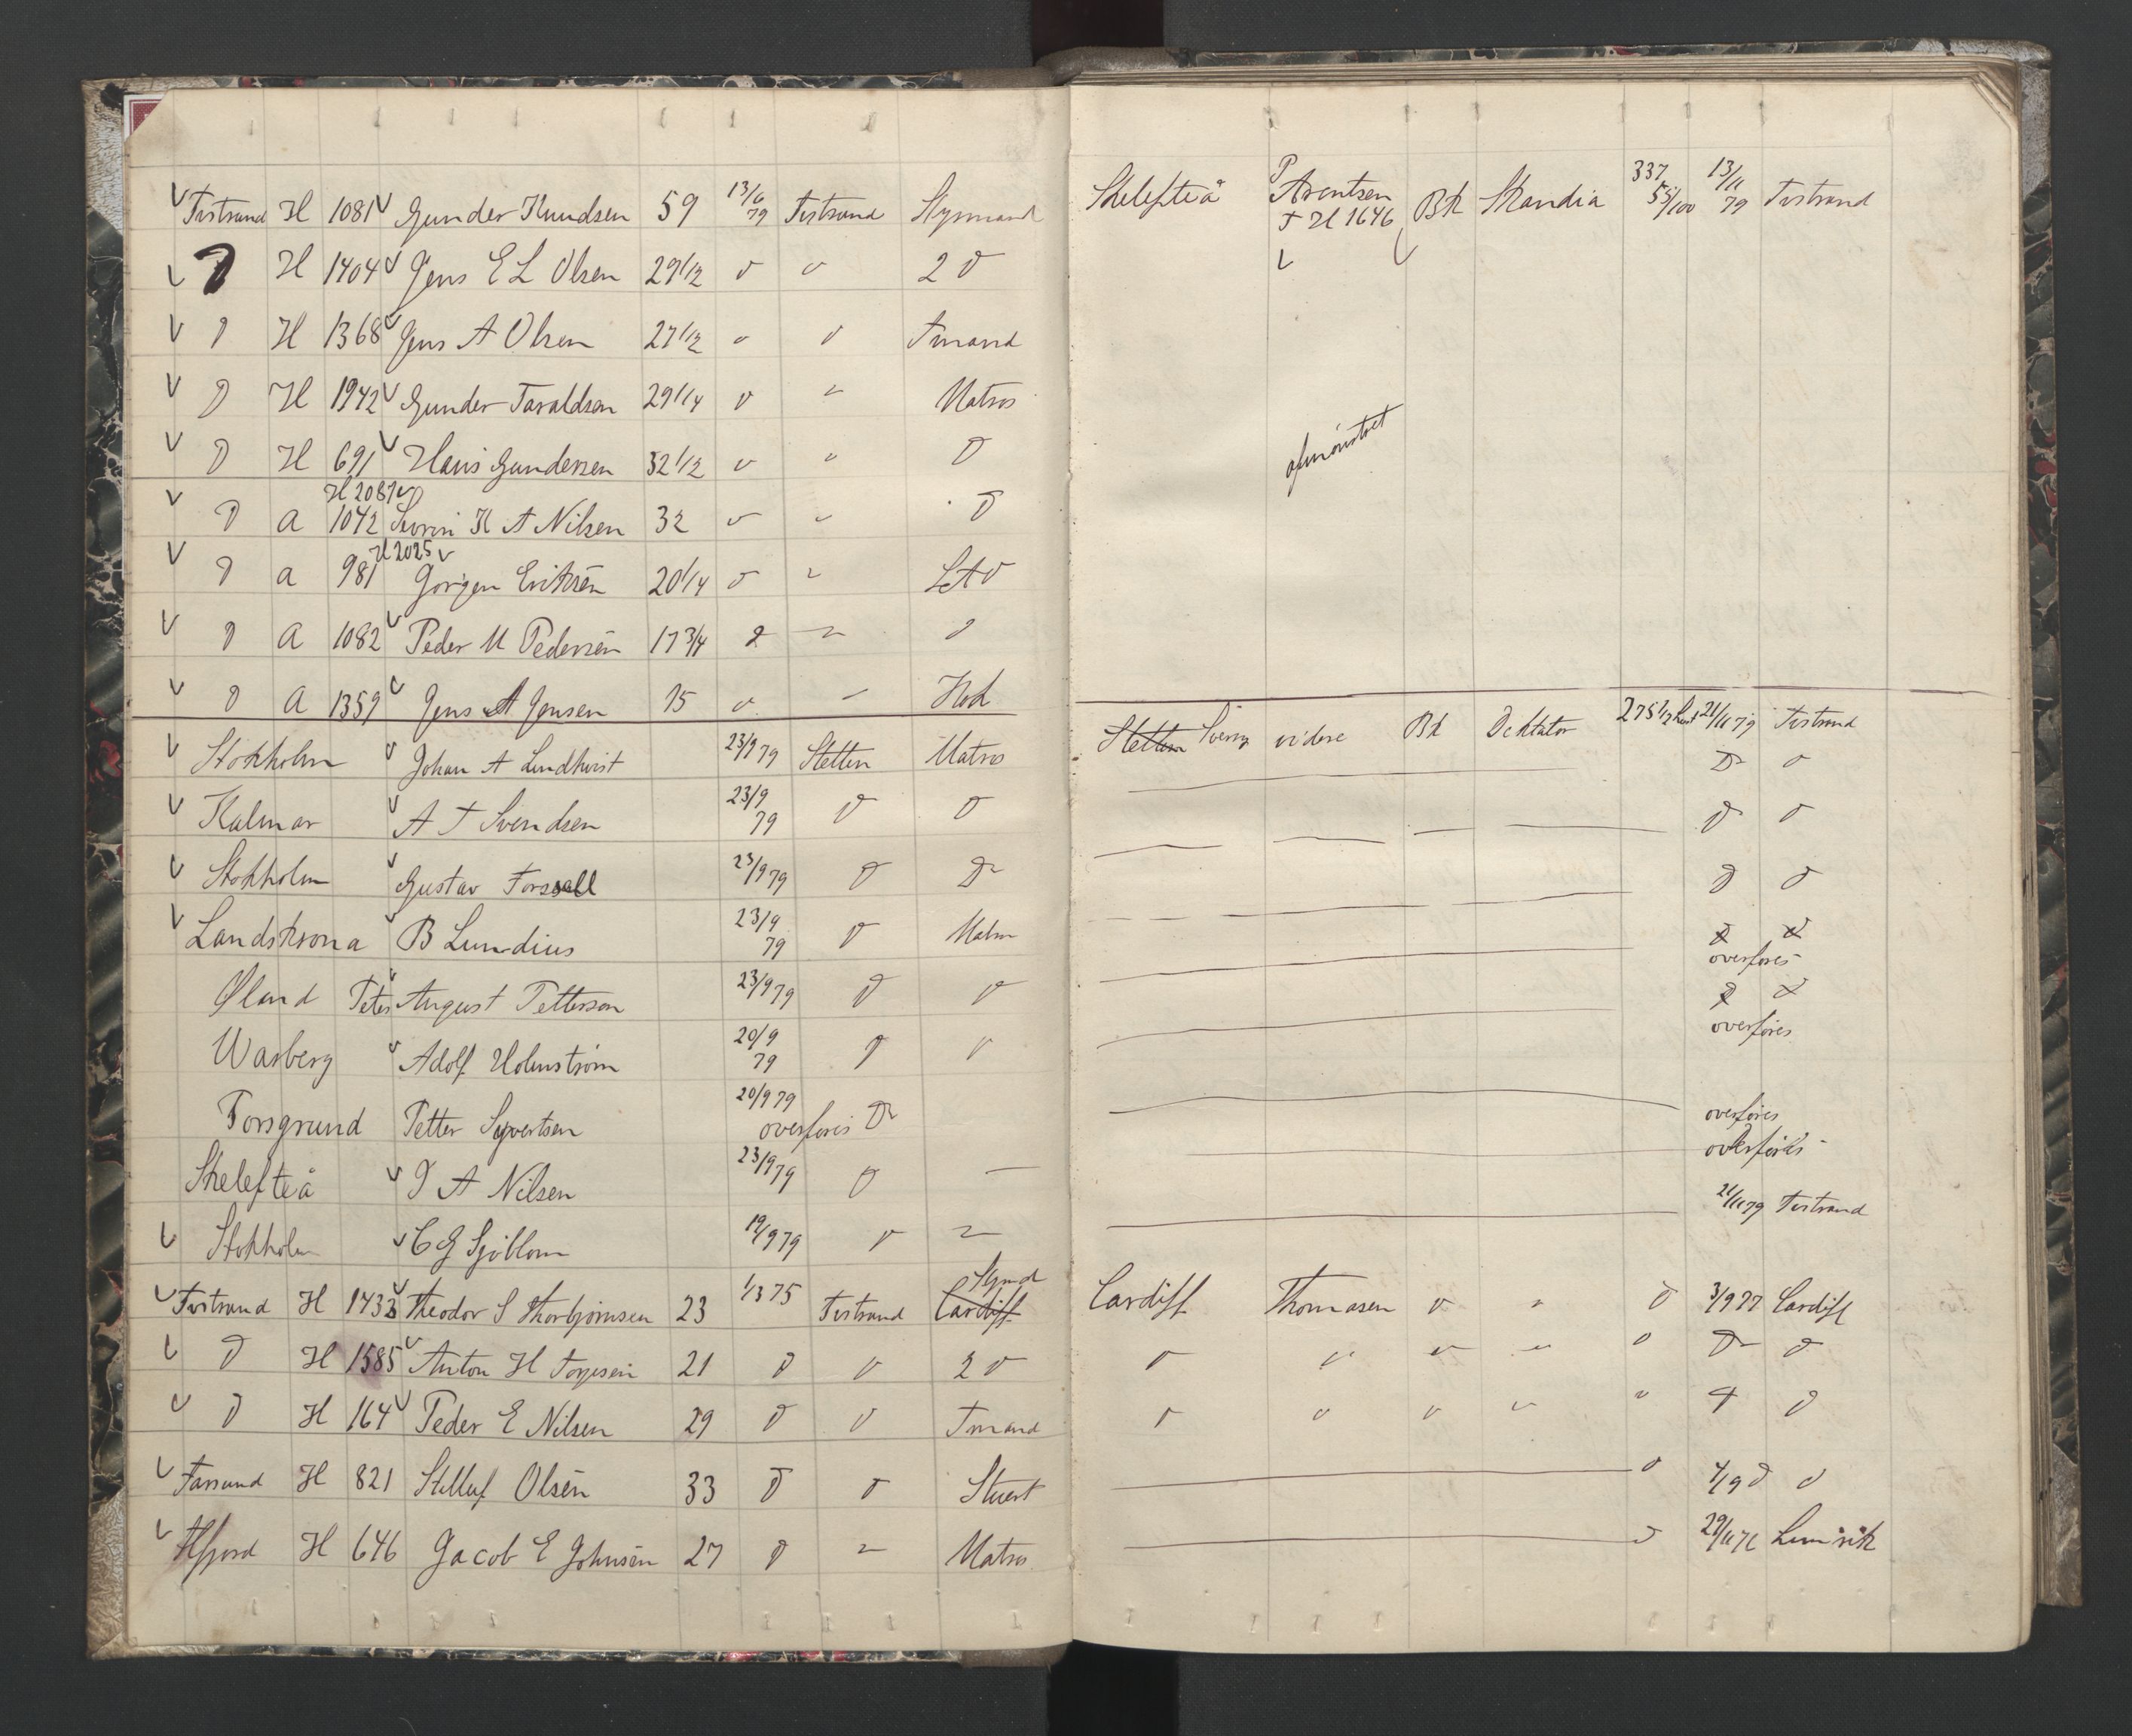 Tvstrand H 1081 Gunder Knudsen 59 13/6 79 Tvstrand Styrmand Skelefteå P Arentsen T H 1646 Bk Skandia 337 55/100 13/11 79 Tvstrand
D H 1404 Jens E L Olsen 29 1/2 D D 2 D
D H 1368 Jens A Olsen 27 1/2 D D Tmand
D H 1942 Gunder Taraldsen 29 1/4 D " Matros
D H 691 Hans Gundersen 32 1/2 D " D afmönstret
H 2087
D A 1042 H A Nilsen 32 D " D
H 2025
D A 981 Jörgen Eriksen 20 1/4 D " LetD
D A 1082 Peder M Pedersen 17 3/4 D " D
D A 1359 Jens A Jensen 15 D " Kok
Stokholm Johan A Lindkvist 23/9 79 Stettin Matros Stettin videre Bk Dcktator 275 1/2 21/11 79 Tvstrand
D D
Kalmar A T Svendsen 23/9 79 D D D D
Stokholm Gustav Forssell 23/9 79 D D D D
Landskrona B Lundius 23/9 79 D D D
overföres
Øland Peter August Petterson 23/9 79 D D D D
overföres
Warberg Adolf Holmström 20/9 79 D D
Porsgrund Petter Syvertsen 20/9 79 overföres D overföres
Skelefteå J A Nilsen 23/9 79 D — overföres
Stokholm C G Sjöblom 19/9 79 D " 21/11 79 Tvstrand
Tvstrand H 1432 Theodor S Thorbjörnsen 23 1/3 75 Tvstrand Cardiff Stymd Cardiff Thomasen D " D 3/9 77 Cardiff
D H 1585 Anton H 21 D D 2 D D " " " D D D
D H 164 Peder E Nilsen 29 D D Tmand D D D " " D D
Farsund H 821 Olsen 33 D D Stuert D 4/9 D D
H 646 Jacob E Johnsen 27 D " Matros D 29/11 76 Limrik